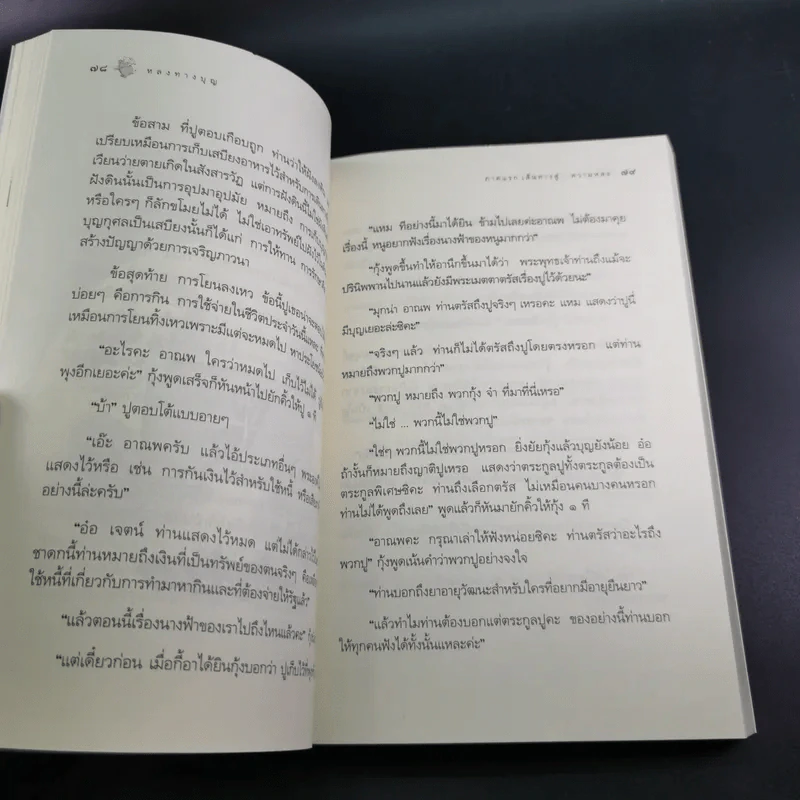 ๗๘ หลงทางบุญ
ข้อสาม ที่ปูตอบเกือบถูก ท่านว่าให้ฝังดิน
เปรียบเหมือนการเก็บเสบียงอาหารไว้สำหรับการเดินทาง
เวียนว่ายตายเกิดในสังสารวัฏ แต่การฝังดินนี้ไม่ใช่
ฝังดินนั้นเป็นการอุปมาอุปมัย หมายถึง การเก็บ
หรือใครๆ ก็ลักขโมยไม่ได้ ไม่ใช่เอาทรัพย์ไปฝัง
บุญกุศลเป็นเสบียงนั้นก็ได้แก่ การให้ทาน การรักษา
สร้างปัญญาด้วยการเจริญภาวนา
ข้อสุดท้าย การโยนลงเหว ข้อนี้ปูเธอน่าจะ
บ่อยๆ คือการกิน การใช้จ่ายในชีวิตประจำวันนี้แหละ
เหมือนการโยนทิ้งเหวเพราะมีแต่จะหมดไป หาประโยชน์
“อะไรคะ อาณพ ใครว่าหมดไป เก็บไว้ไม่ได้
พุงอีกเยอะค่ะ” กุ้งพูดเสร็จก็หันหน้าไปยักคิ้วให้ปู ๑ ที
“บ้า” ปูตอบโต้แบบอายๆ
“เอ๊ะ อาณพครับ แล้วไอ้ประเภทอื่นๆ
แสดงไว้หรือ เช่น การกันเงินไว้สำหรับใช้หนี้
อย่างนี้ล่ะครับ”
“อ๋อ เจตน์ ท่านแสดงไว้หมด แต่ไม่ได้กล่าวไว้ใน
ชาดกนี้ท่านหมายถึงเงินที่เป็นทรัพย์ของตนจริงๆ
ใช้หนี้ที่เกี่ยวกับการทำมาหากินและที่ต้องจ่ายให้รัฐแล้ว”
“แล้วตอนนี้เรื่องนางฟ้าของเราไปถึงไหนแล้วคะ”
“แต่เดี๋ยวก่อน เมื่อกี้อาได้ยินกุ้งบอกว่า ปูเก็บไว้ที่พุง
ภาคแรก เส้นทางสู่ ความหลง ๗๙
“แหม ทีอย่างนี้มาได้ยิน ข้ามไปเลยค่ะอาณพ ไม่ต้องมาคุย
เรื่องนี้ หนูอยากฟังเรื่องนางฟ้าของหนูมากกว่า”
“กุ้งพูดขึ้นทำให้อานึกขึ้นมาได้ว่า พระพุทธเจ้าท่านถึงแม้จะ
ปรินิพพานไปนานแล้วยังมีพระเมตตาตรัสเรื่องปูไว้ด้วยนะ”
“มุกน่า อาณพ ท่านตรัสถึงปูจริงๆ เหรอคะ แหม แสดงว่าปูนี่
มีบุญเยอะล่ะซิคะ”
“จริงๆ แล้ว ท่านก็ไม่ได้ตรัสถึงปูโดยตรงหรอก แต่ท่าน
หมายถึงพวกปูมากกว่า”
“พวกปู หมายถึง พวกกุ้ง จ๋า ที่มาที่นี่เหรอ”
“ไม่ใช่ ... พวกนี้ไม่ใช่พวกปู”
“ใช่ๆ พวกนี้ไม่ใช่พวกปูหรอก ยิ่งยัยกุ้งแล้วบุญยังน้อย อ๋อ
ถ้างั้นก็หมายถึงญาติปูเหรอ แสดงว่าตระกูลปูทั้งตระกูลต้องเป็น
ตระกูลพิเศษซิคะ ท่านถึงเลือกตรัส ไม่เหมือนคนบางคนหรอก
ท่านไม่ได้พูดถึงเลย” พูดแล้วก็หันมายักคิ้วให้กุ้ง ๑ ที
“อาณพคะ กรุณาเล่าให้ฟังหน่อยซิคะ ท่านตรัสว่าอะไรถึง
พวกปู” กุ้งพูดเน้นคำว่าพวกปูอย่างจงใจ
“ท่านบอกถึงยาอายุวัฒนะสำหรับใครที่อยากมีอายุยืนยาว”
“แล้วทำไมท่านต้องบอกแต่ตระกูลปูคะ ของอย่างนี้ท่านบอก
ให้ทุกคนฟังได้ทั้งนั้นแหละค่ะ”